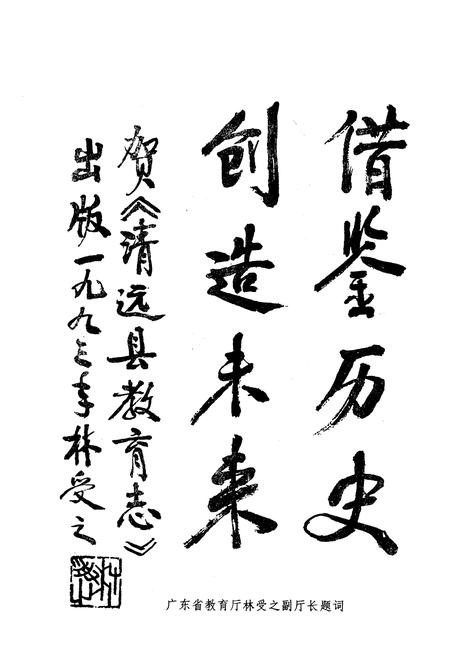 借鉴历史
创造未来
贺《清远县教育志》
出版一九九三年林受之
广东省教育厅林受之副厅长题词